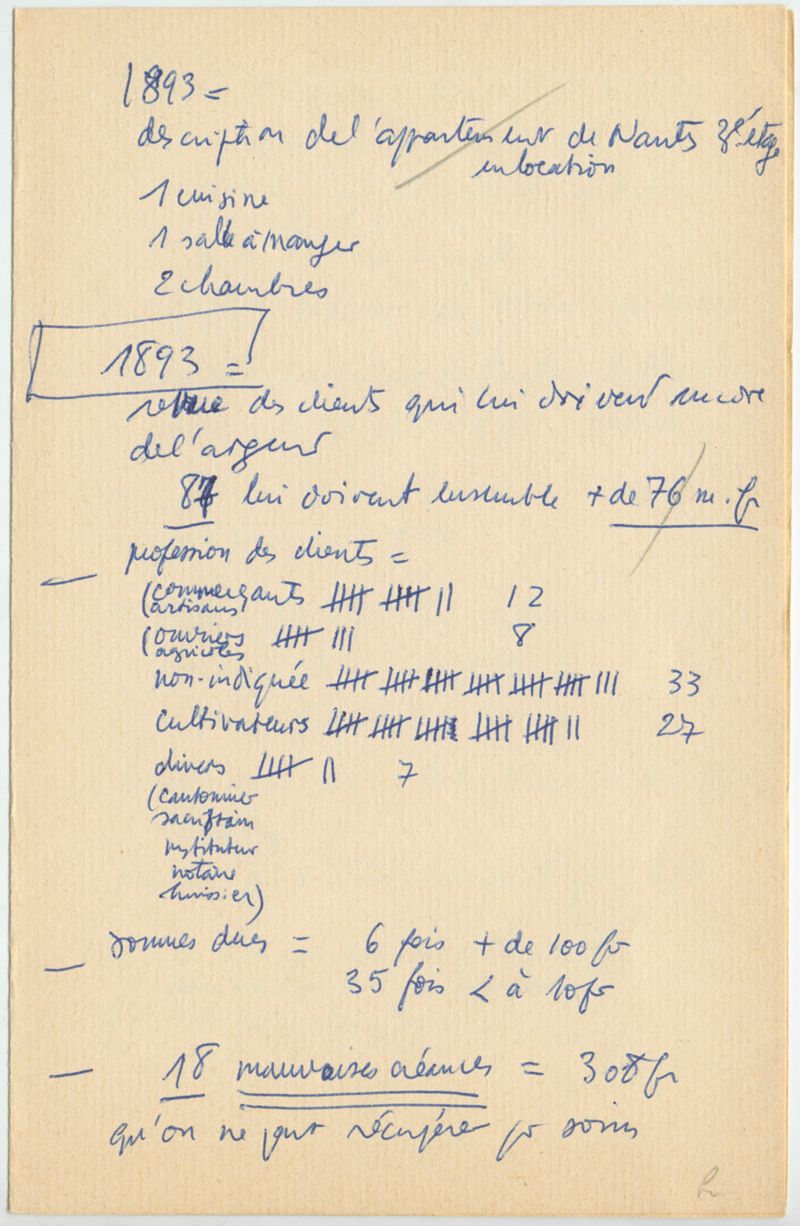 1893 =
description de l'appartement de Nantes 3e étage
en location
1 cuisine
1 salle à manger
2 chambres
1893 =
revue des clients qui lui doivent encore
de l'argent
87 lui doivent ensemble + de 76 m. fr
profession des clients =
(commerçants 12
artisans)
(ouvriers 8
agricoles
non-indiquée 33
cultivateurs 27
divers 7
(cantonnier
sacristain
instituteur
notaire
huissier)
sommes dues = 6 fois + de 100 fr
35 fois < à 10 fr
18 mauvaises créances = 308 fr
qu'on ne peut récupérer pr soins